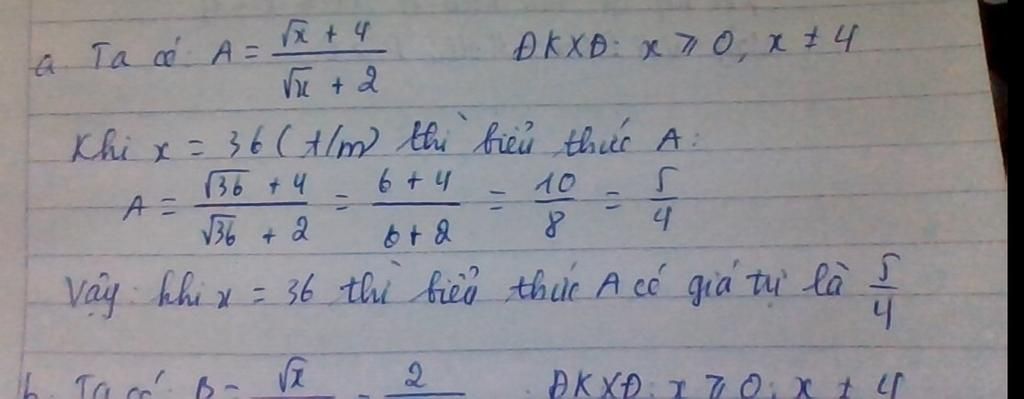 a. Ta có A = (√x + 4)/(√x + 2) ĐKXĐ: x ⩾ 0, x ≠ 4
Khi x = 36 (t/m) thì biểu thức A:
A = (√36 + 4)/(√36 + 2) = (6 + 4)/(6 + 2) = 10/8 = 5/4
Vậy khi x = 36 thì biểu thức A có giá trị là 5/4
b. Ta có B = √x - 2 ĐKXĐ: x ⩾ 0; x ≠ 4